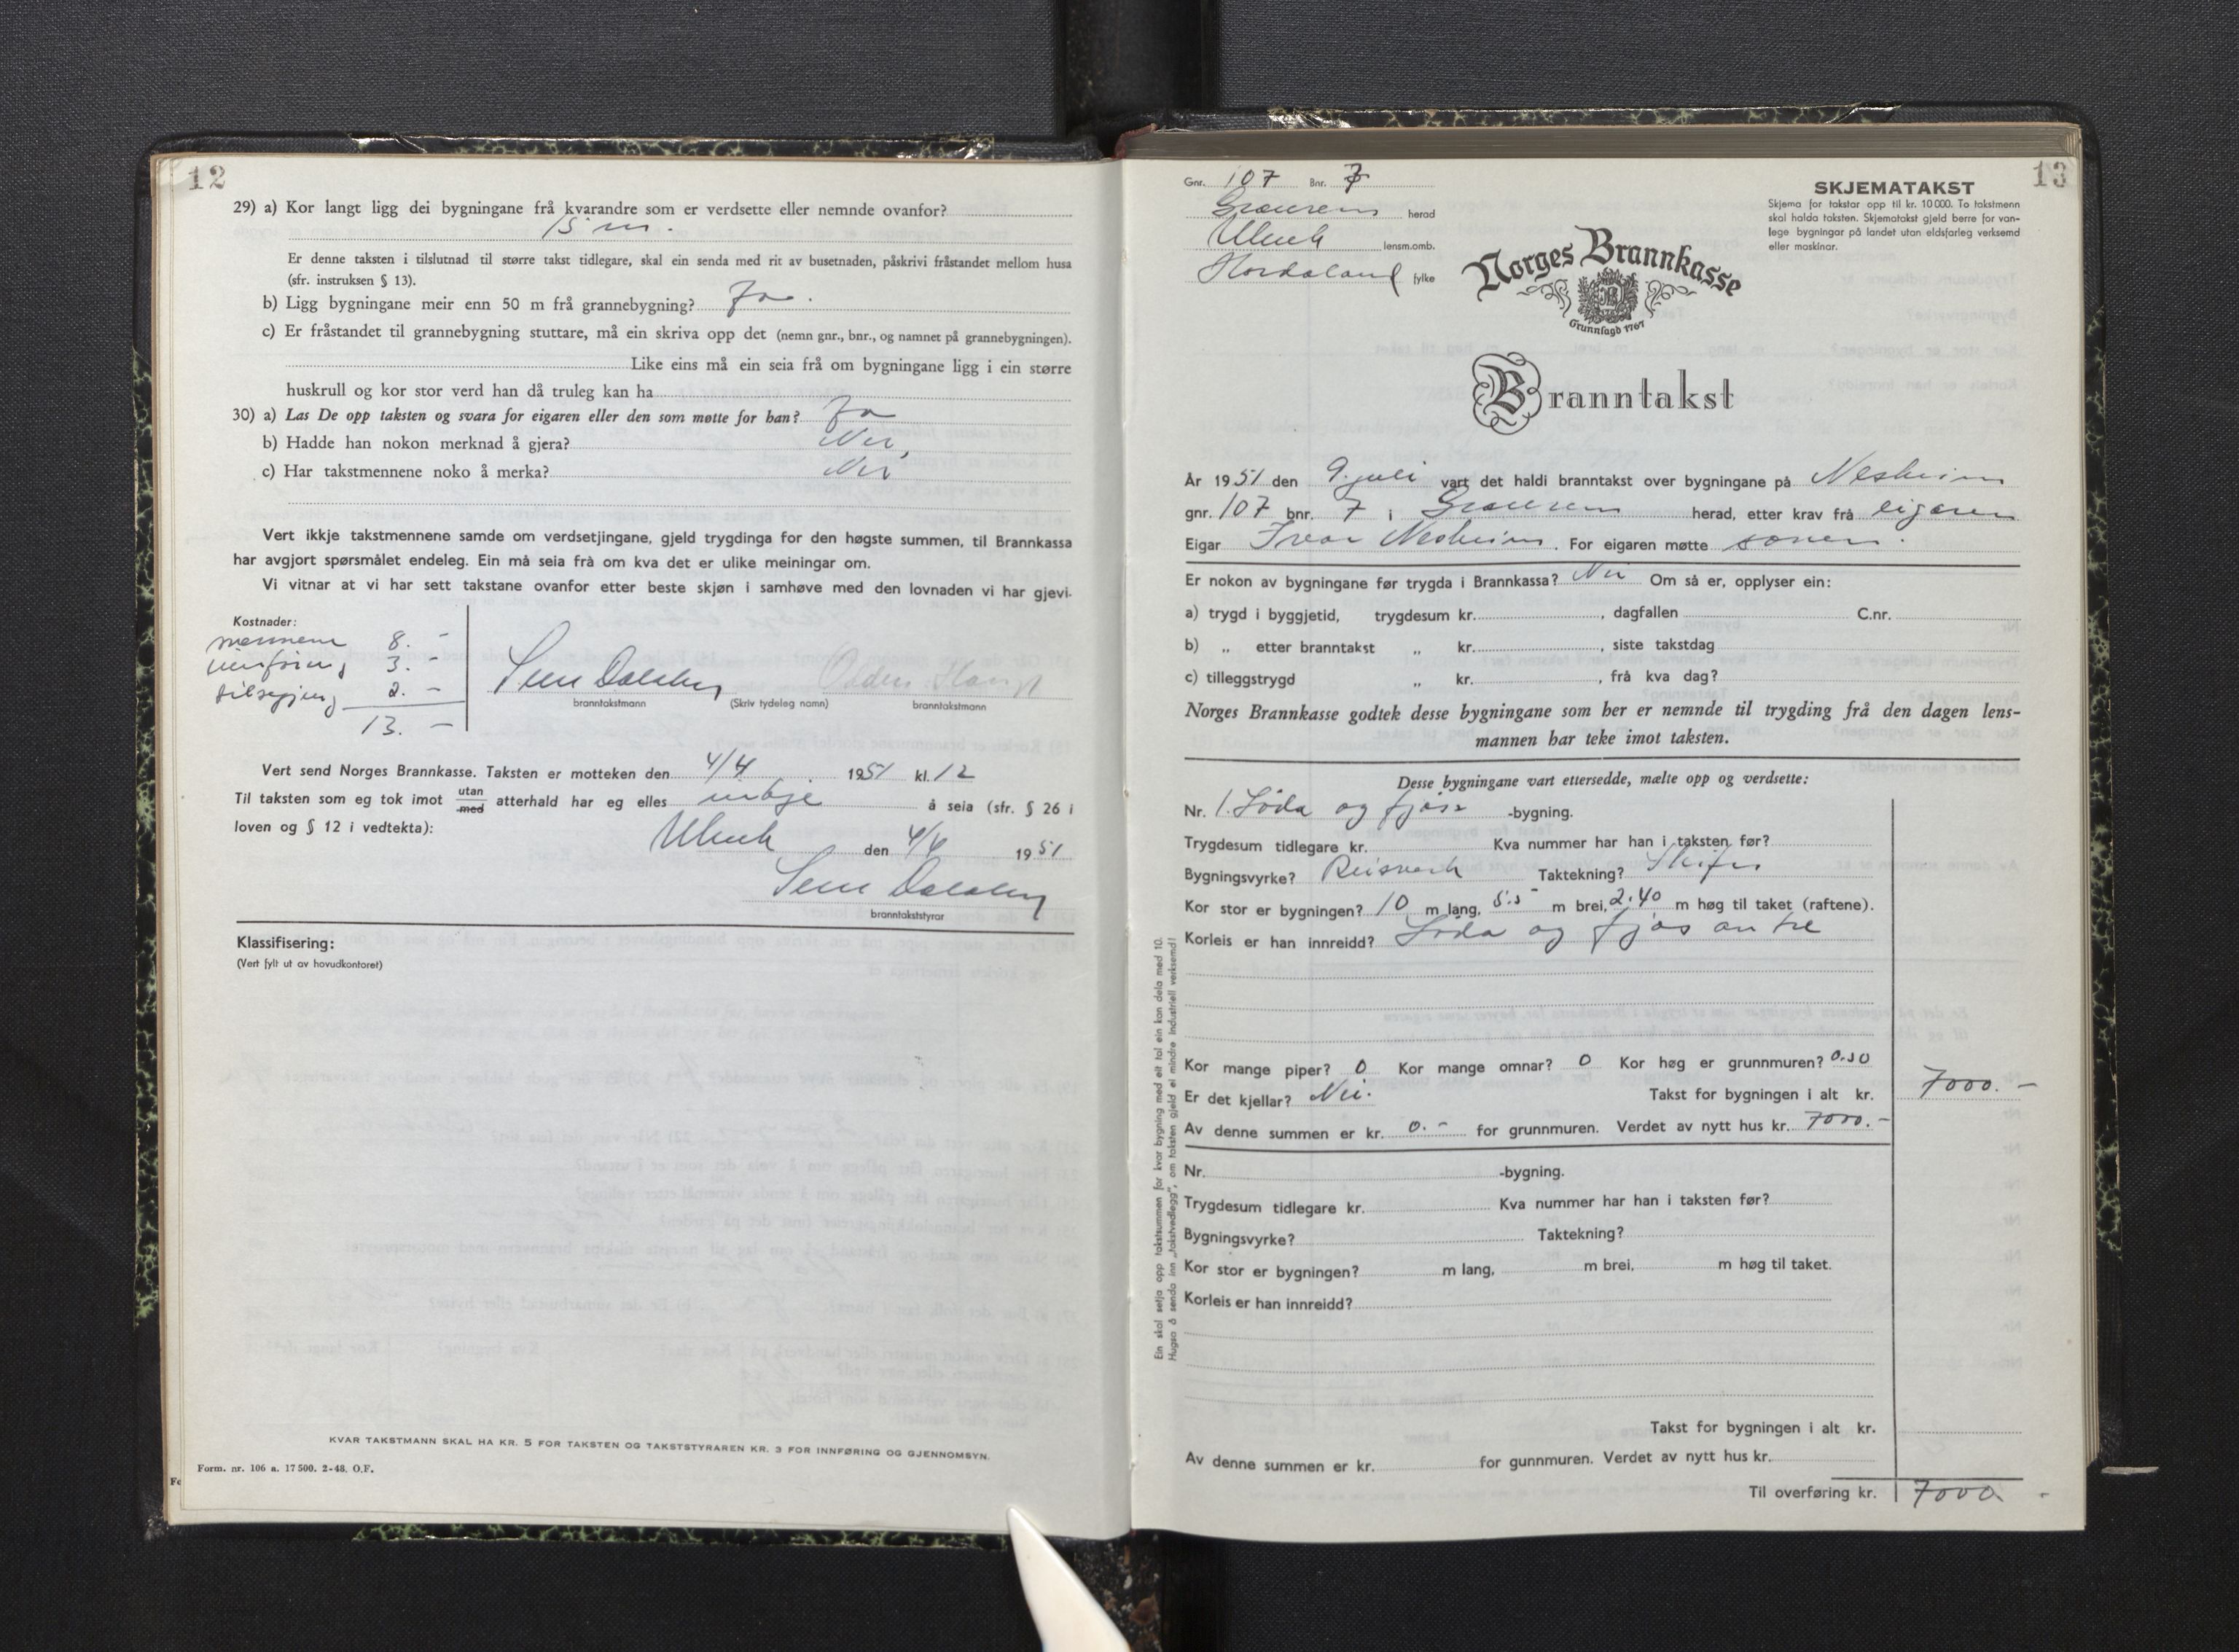 12
29) a) Kor langt ligg dei bygningane frå kvarandre som er verdsette eller nemnde ovanfor?
15 m.
Er denne taksten i tilslutnad til større takst tidlegare, skal ein senda med rit av busetnaden, påskrivi fråstandet mellom husa
(sfr. instruksen § 13).
b) Ligg bygningane meir enn 50 m frå grannebygning? Ja.
c) Er fråstandet til grannebygning stuttare, må ein skriva opp det (nemn gnr., bnr., og namnet på grannebygningen).
Like eins må ein seia frå om bygningane ligg i ein større
huskrull og kor stor verd han då truleg kan ha
30) a) Las De opp taksten og svara for eigaren eller den som møtte for han? Ja
b) Hadde han nokon merknad å gjera? Nei,
c) Har takstmennene noko å merka? Nei
Vert ikkje takstmennene samde om verdsetjingane, gjeld trygdinga for den høgste summen, til Brannkassa
har avgjort spørsmålet endeleg. Ein må seia frå om kva det er ulike meiningar om.
Vi vitnar at vi har sett takstane ovanfor etter beste skjøn i samhøve med den lovnaden vi har gjevi.
Kostnader:
mennene 8. -
innføring 3. -
tilsegjing 2. -
13. -
branntakstmann (Skriv tydeleg namn) branntakstmann
Vert send Norges Brannkasse. Taksten er motteken den 4/4 1951 kl. 12
Til taksten som eg tok imot utan/med atterhald har eg elles inkje å seia (sfr. § 26 i
loven og § 12 i vedtekta):
Ulvik den 4/4 1951
branntakststyrar
Klassifisering:
(Vert fylt ut av hovudkontoret)
KVAR TAKSTMANN SKAL HA KR. 5 FOR TAKSTEN OG TAKSTSTYRAREN KR. 3 FOR INNFØRING OG GJENNOMSYN.
Form. nr. 106 a. 17500. 2-48. O.F.
13
Gnr. 107 Bnr. 7
herad
Ulvik lensm.omb.
Hordaland fylke
SKJEMATAKST
Skjema for takstar opp til kr. 10 000. To takstmenn
skal halda taksten. Skjematakst gjeld berre for van-
lege bygningar på landet utan eldsfarleg verksemd
eller maskinar.
Norges Brannkasse
Grunnlagd 1767
Branntakst
År 1951 den 9. juli vart det haldi branntakst over bygningane på Nesheim
gnr. 107 bnr. 7 i herad, etter krav frå eigaren
Eigar Ivar Nesheim. For eigaren møtte sonen.
Er nokon av bygningane før trygda i Brannkassa? Nei Om så er, opplyser ein:
a) trygd i byggjetid, trygdesum kr. , dagfallen C.nr.
b) „ etter branntakst „ kr. , siste takstdag
c) tilleggstrygd „ kr. , frå kva dag?
Norges Brannkasse godtek desse bygningane som her er nemnde til trygding frå den dagen lens-
mannen har teke imot taksten.
Desse bygningane vart ettersedde, mælte opp og verdsette:
Nr. 1. Löda og fjöss -bygning.
Trygdesum tidlegare kr. Kva nummer har han i taksten før?
Bygningsvyrke? Reisverk Taktekning? Skifer
Kor stor er bygningen? 10 m lang, 5.5 m brei, 2.40 m høg til taket (raftene).
Korleis er han innreidd? Löda og fjös av tre
Kor mange piper? 0 Kor mange omnar? 0 Kor høg er grunnmuren?
Er det kjellar? Nei. Takst for bygningen i alt kr. 7000. -
Av denne summen er kr. 0. - for grunnmuren. Verdet av nytt hus kr. 7000. -
Nr. -bygning.
Trygdesum tidlegare kr. Kva nummer har han i taksten før?
Bygningsvyrke? Taktekning?
Kor stor er bygningen? m lang, m brei, m høg til taket.
Korleis er han innreidd?
Takst for bygningen i alt kr.
Av denne summen er kr. for gunnmuren. Verdet av nytt hus kr.
Til overføring kr. 7000. -
Ein skal setja opp takstsummen for kvar bygning med eit tal ein kan dela med 10.
Hugsa å senda inn „takstvedlegg", om taksten gjeld ei mindre industriell verksemd!